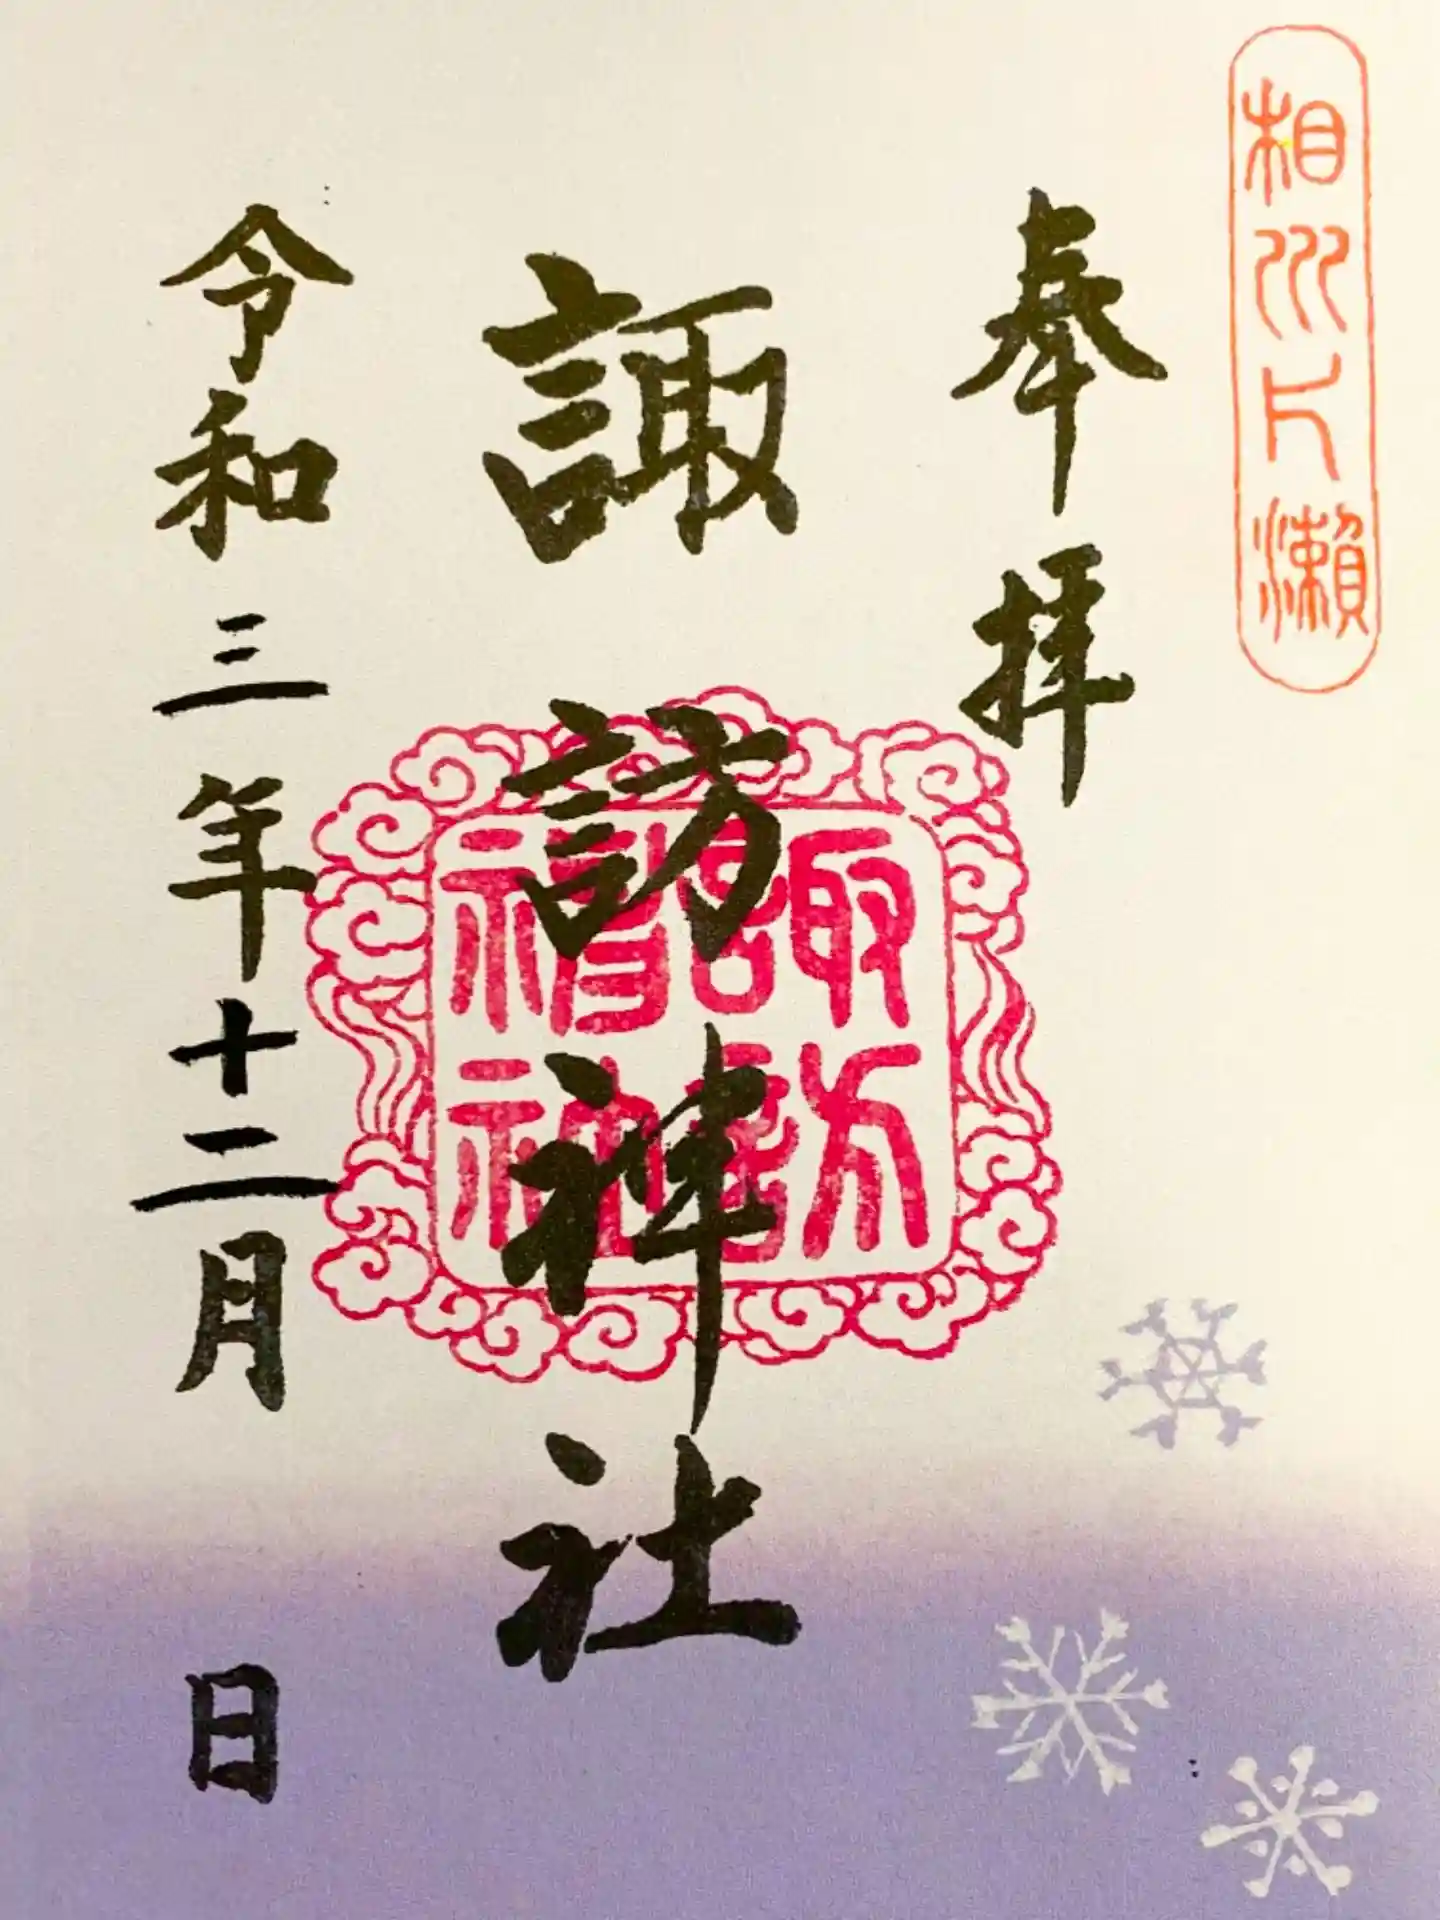 相州片瀬
奉拝
諏訪神社
諏訪
神社
令和三年十二月　日